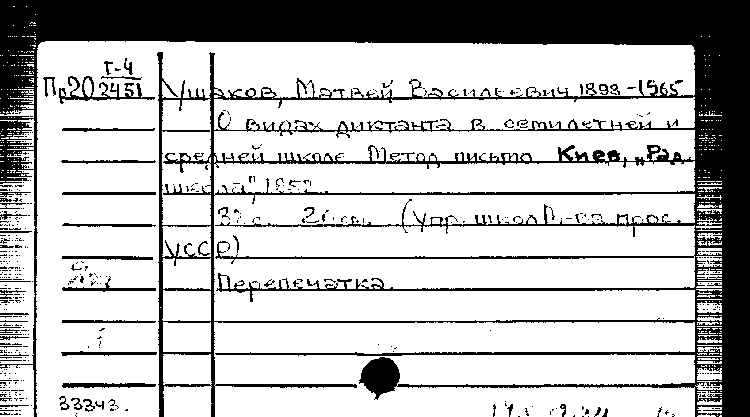 Г-4
Пр20 2451 Ушаков, Матвей Васильевич, 1898-1965
О видах диктанта в семилетней и
средней школе. Метод. письмо. Киев, „Рад.
школа",
(Упр. школ М-ва прос.
УССР).
Перепечатка.
33343.